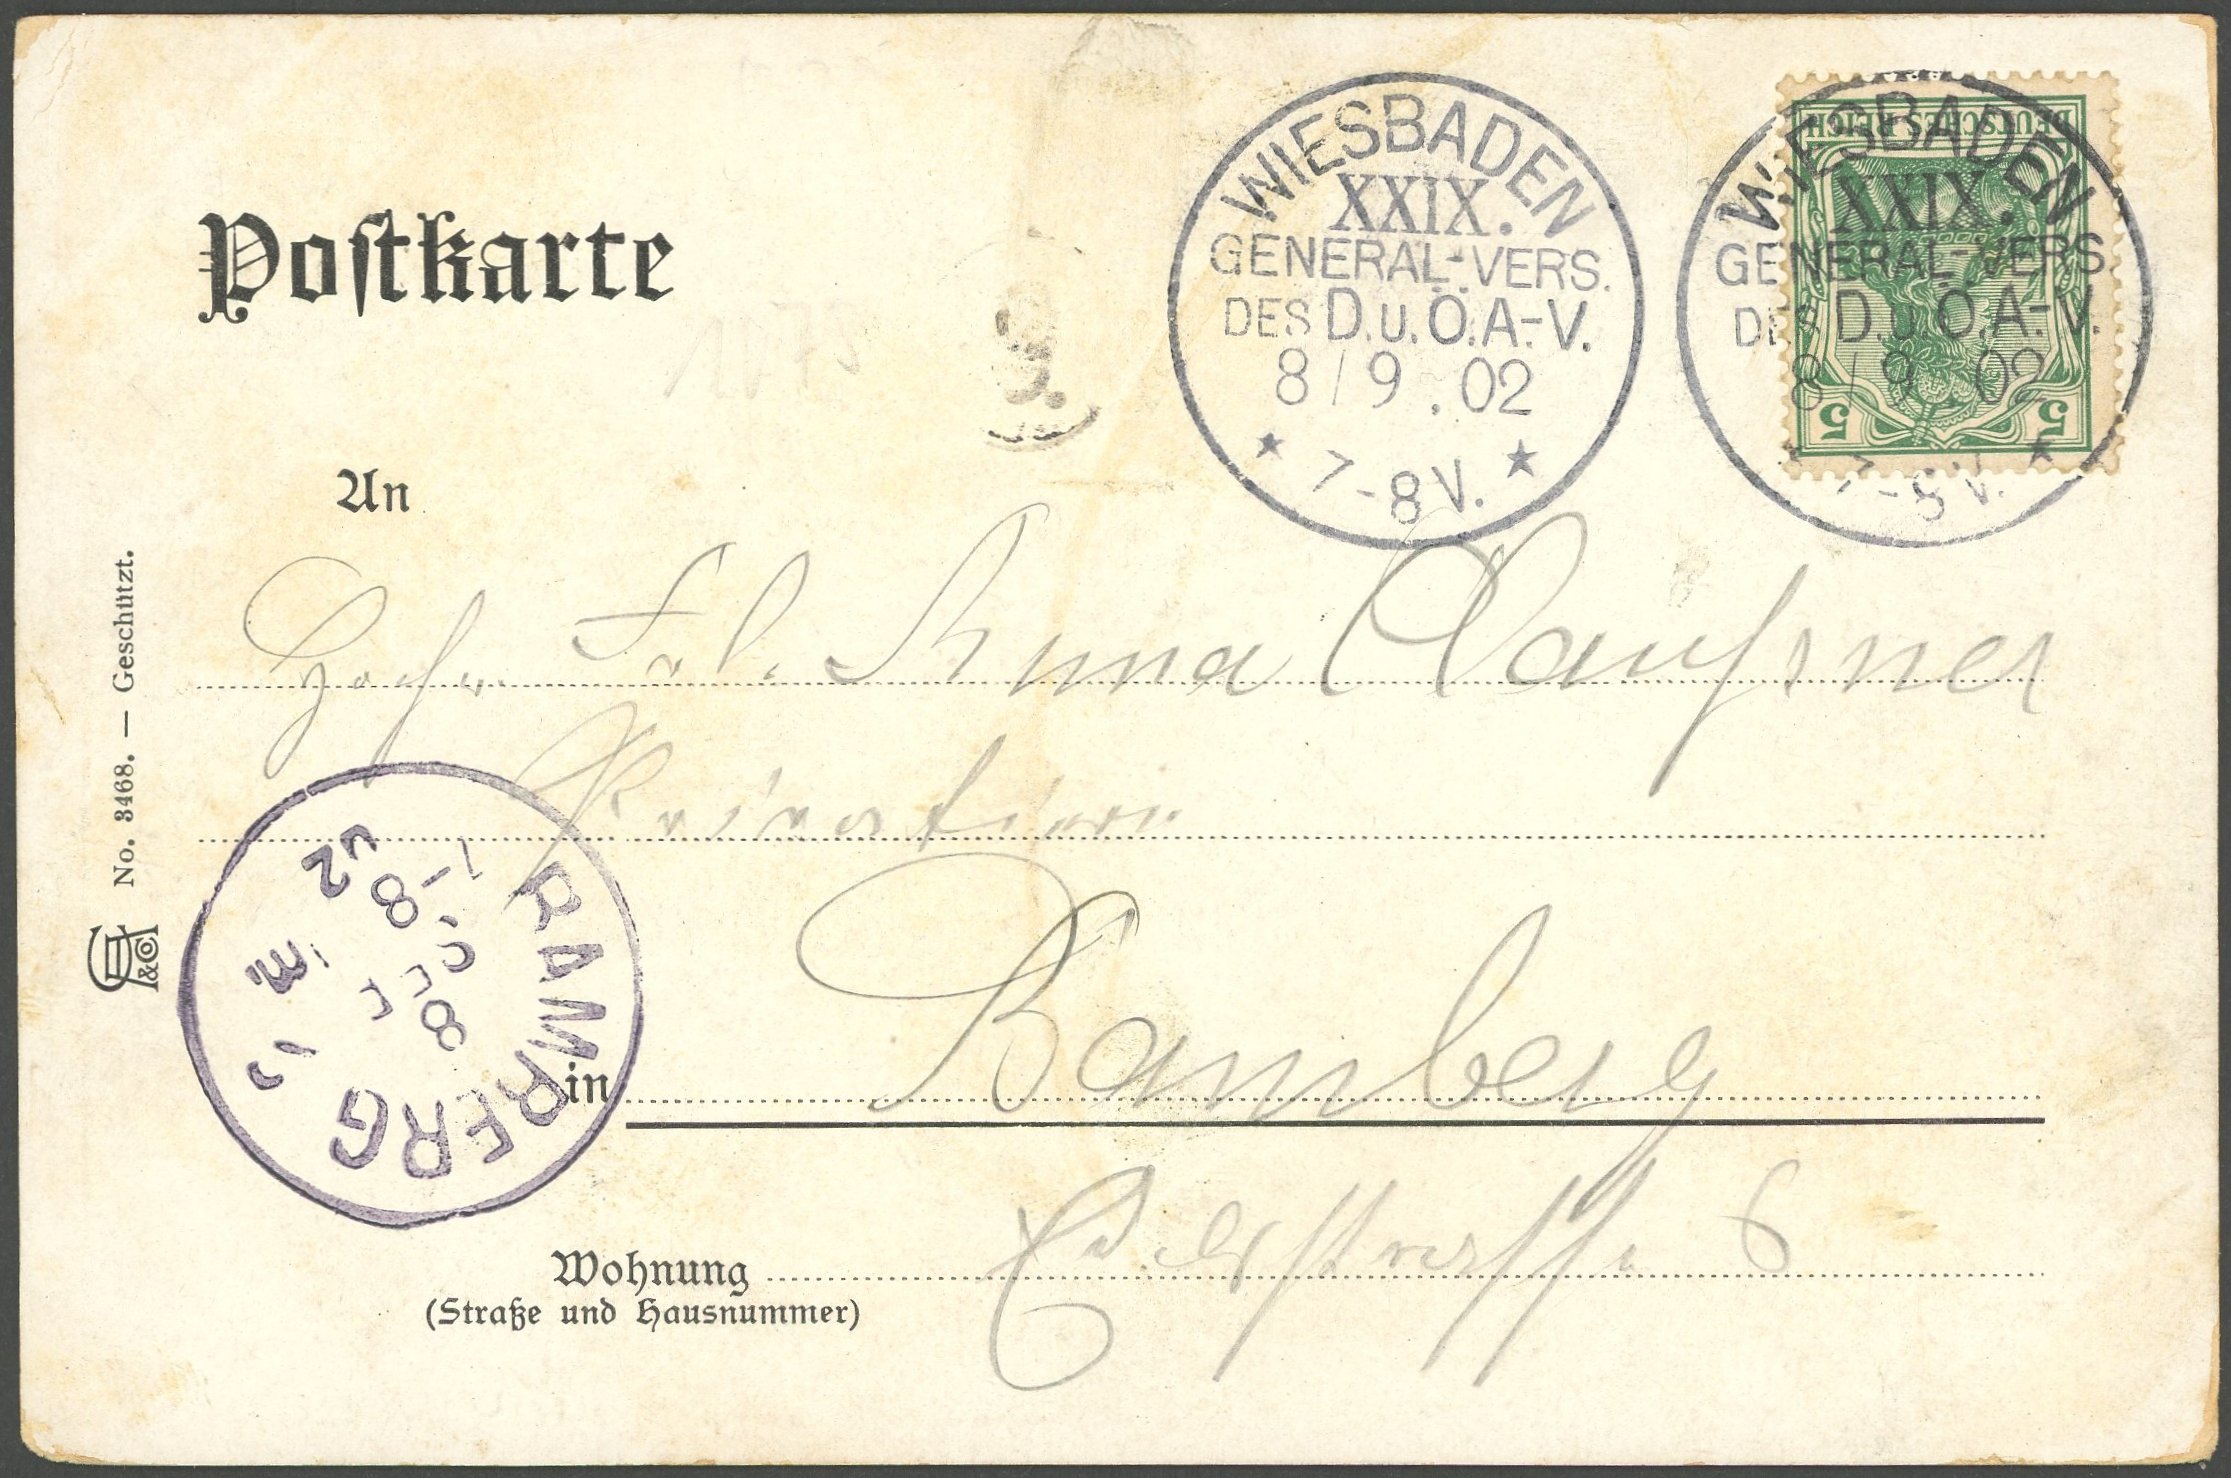 Postkarte
WIESBADEN
XXIX.
GENERAL-VERS.
DES D. u. Ö. A.-V.
8/9.02
* 7-8 V. *
DEUTSCHES REICH
5 5
WIESBADEN
XXIX.
GENERAL-VERS.
DES D. u. Ö. A.-V.
8/9 02
7-8 V. *
An
Frl. Anna
Privatiere
BAMBERG
in Bamberg
Wohnung
(Straße und Hausnummer)
6
No. 3468. — Geschützt.